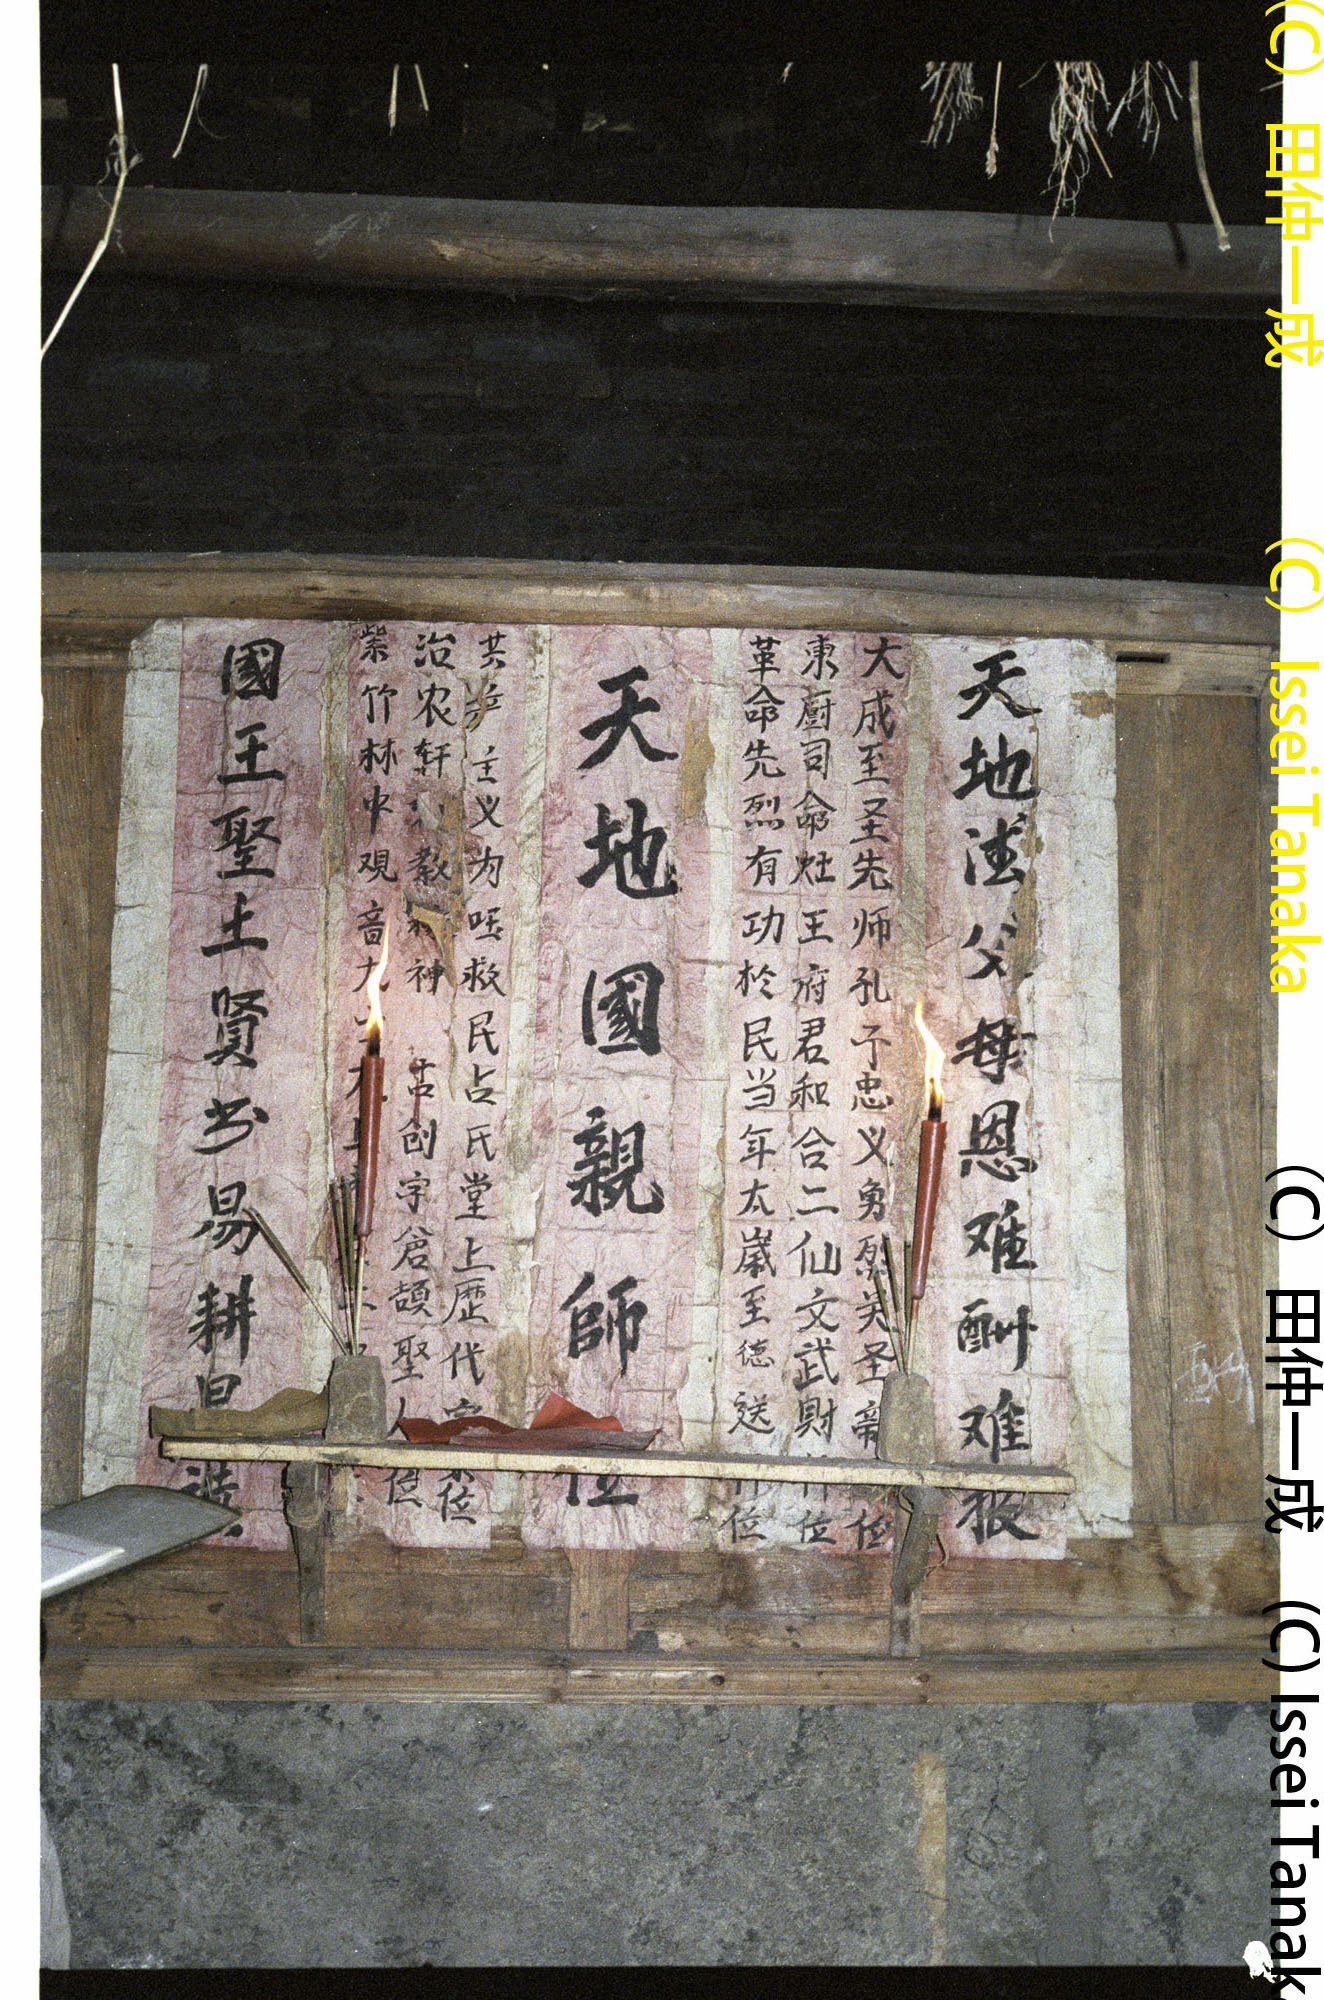 天地法父母恩难酬难报
大成至圣先师孔子忠义勇烈关圣帝位
東厨司命灶王府君和合二仙文武財位
革命先烈有功於民当年太歲至德送位
天地國親師位
共产主义为呸救民占氏堂上歷代宗位
治农轩教神 古创字倉颉聖人位
紫竹林中观音九
國王聖土贤书易耕
(C) 田仲一成 (C) Issei Tanaka
(C) 田仲一成 (C) Issei Tanak